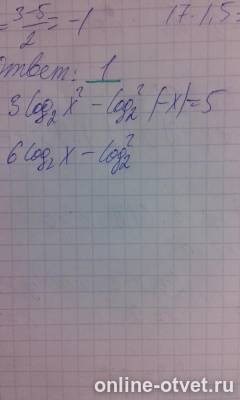 = (3-5)/2 = -1
17.1,5=
Ответ: 1
3log₂x² - log₂²(-x)=5
6log₂x - log₂²
online-otvet.ru